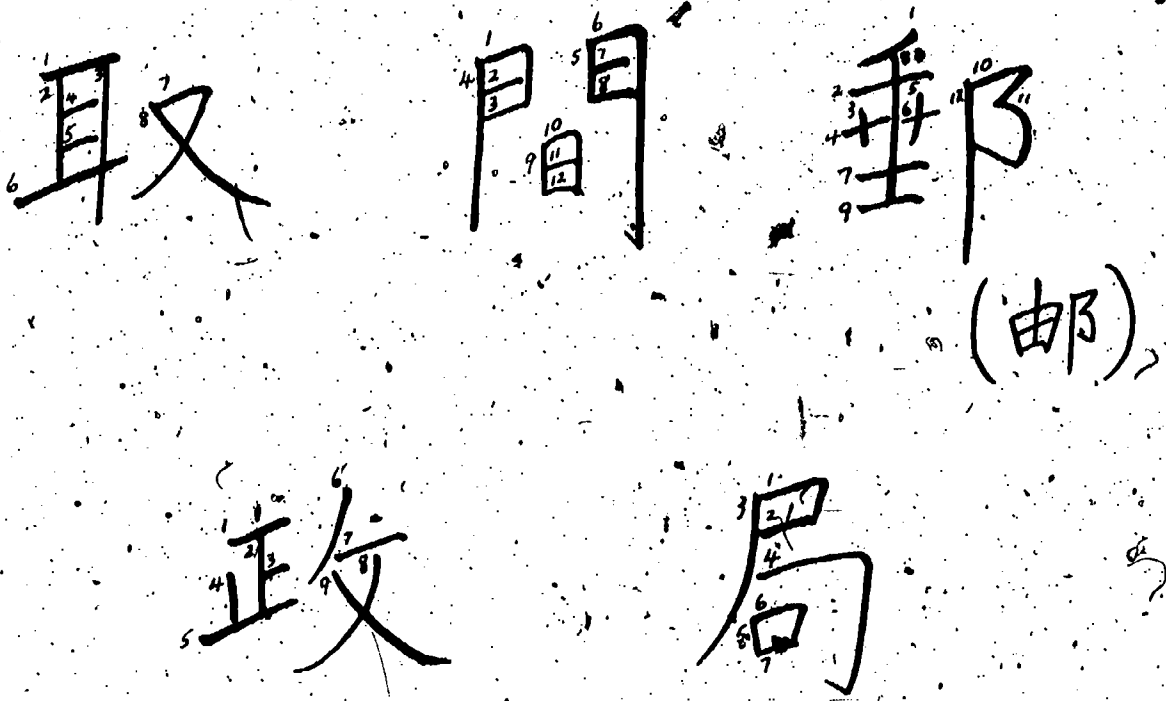 取 間 郵
(邮)
政 局